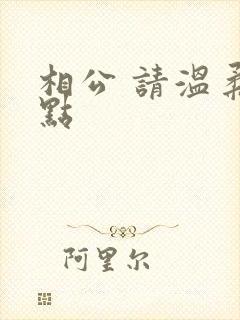 相公 請溫柔
點
阿里尔